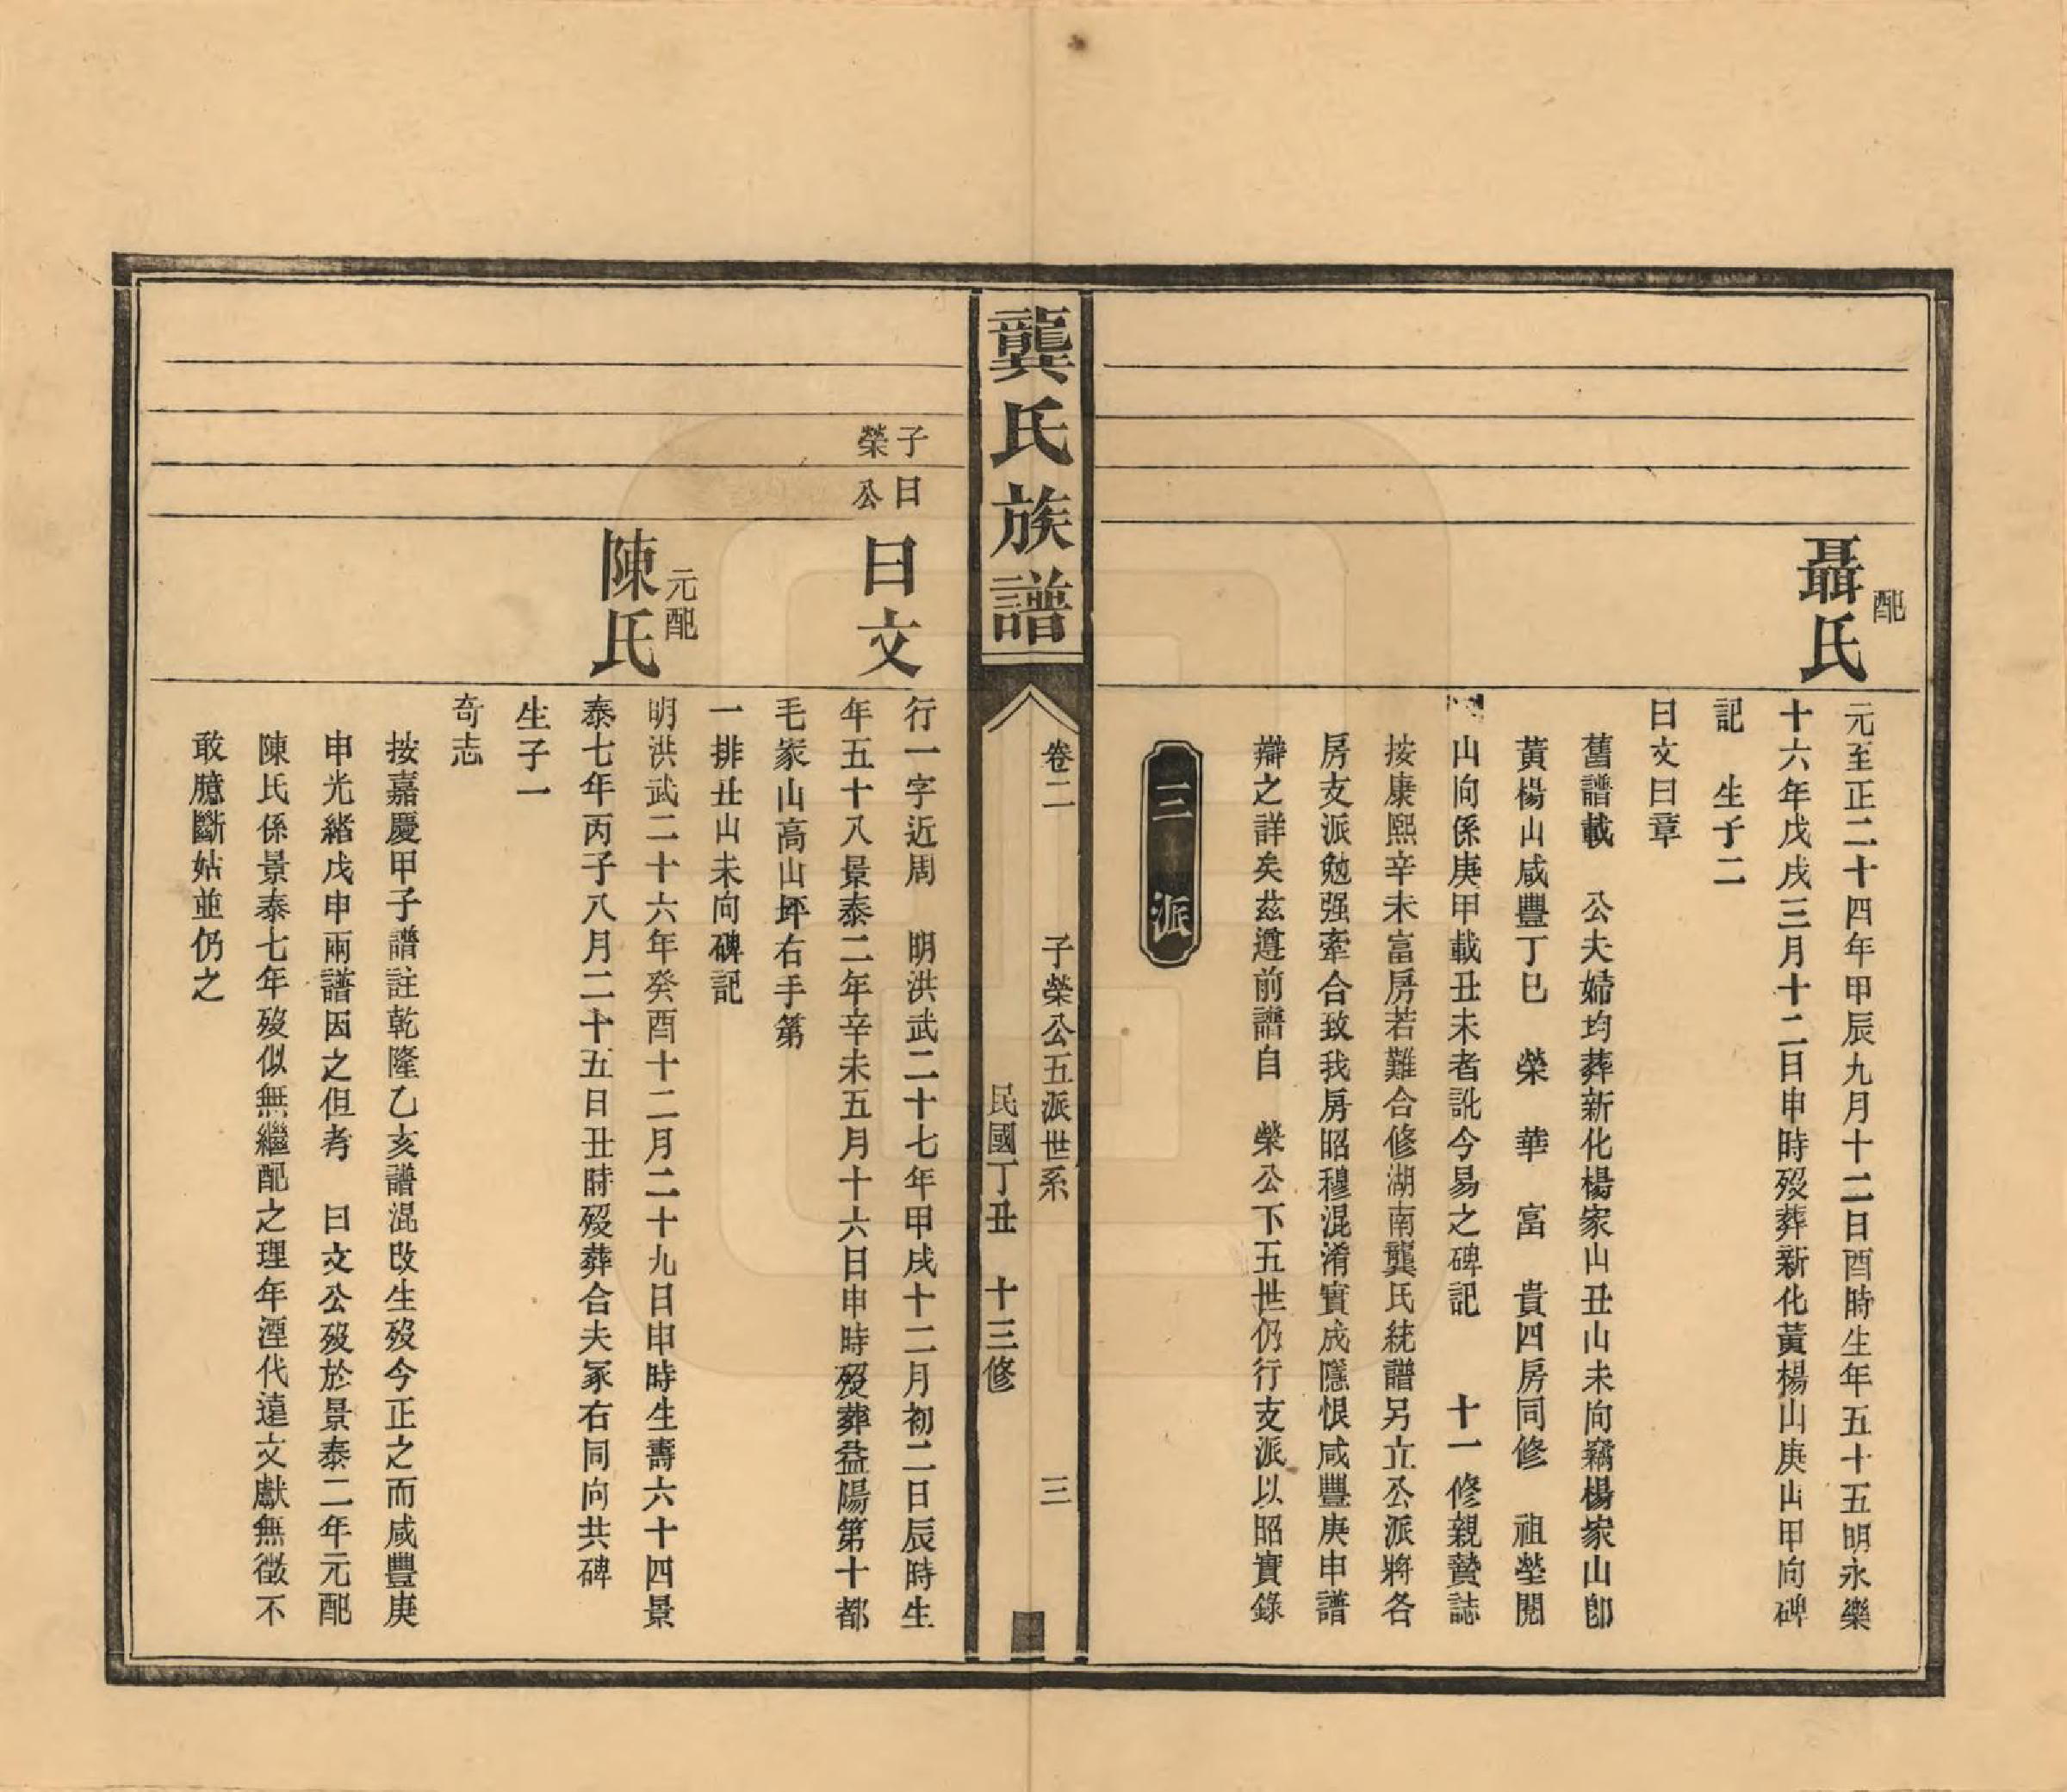 配
聶氏
元至正二十四年甲辰九月十二日酉時生年五十五明永樂
十六年戊戌三月十二日申時歿葬新化黃楊山庚山甲向碑
記　生子二
曰文曰章
舊譜載　公夫婦均葬新化楊家山丑山未向竊楊家山卽
黃楊山咸豐丁巳　榮　華　富　貴四房同修　祖塋閱
山向係庚甲載丑未者訛今易之碑記　十一修親贊誌
按康熙辛未富房若難合修湖南龔氏統譜另立公派將各
房支派勉强牽合致我房昭穆混淆實成隱恨咸豐庚申譜
辯之詳矣茲遵前譜自　榮公下五世仍行支派以昭實錄
三派
龔氏族譜
卷二　子榮公五派世系　三
民國丁丑　十三修
子曰
榮公
曰文
行一字近周　明洪武二十七年甲戌十二月初二日辰時生
年五十八景泰二年辛未五月十六日申時歿葬益陽第十都
毛家山高山坪右手第
一排丑山未向碑記
元配
陳氏
明洪武二十六年癸酉十二月二十九日申時生壽六十四景
泰七年丙子八月二十五日丑時歿葬合夫冢右同向共碑
生子一
奇志
按嘉慶甲子譜註乾隆乙亥譜混改生歿今正之而咸豐庚
申光緒戊申兩譜因之但考　曰文公歿於景泰二年元配
陳氏係景泰七年歿似無繼配之理年湮代遠文獻無徵不
敢臆斷姑並仍之